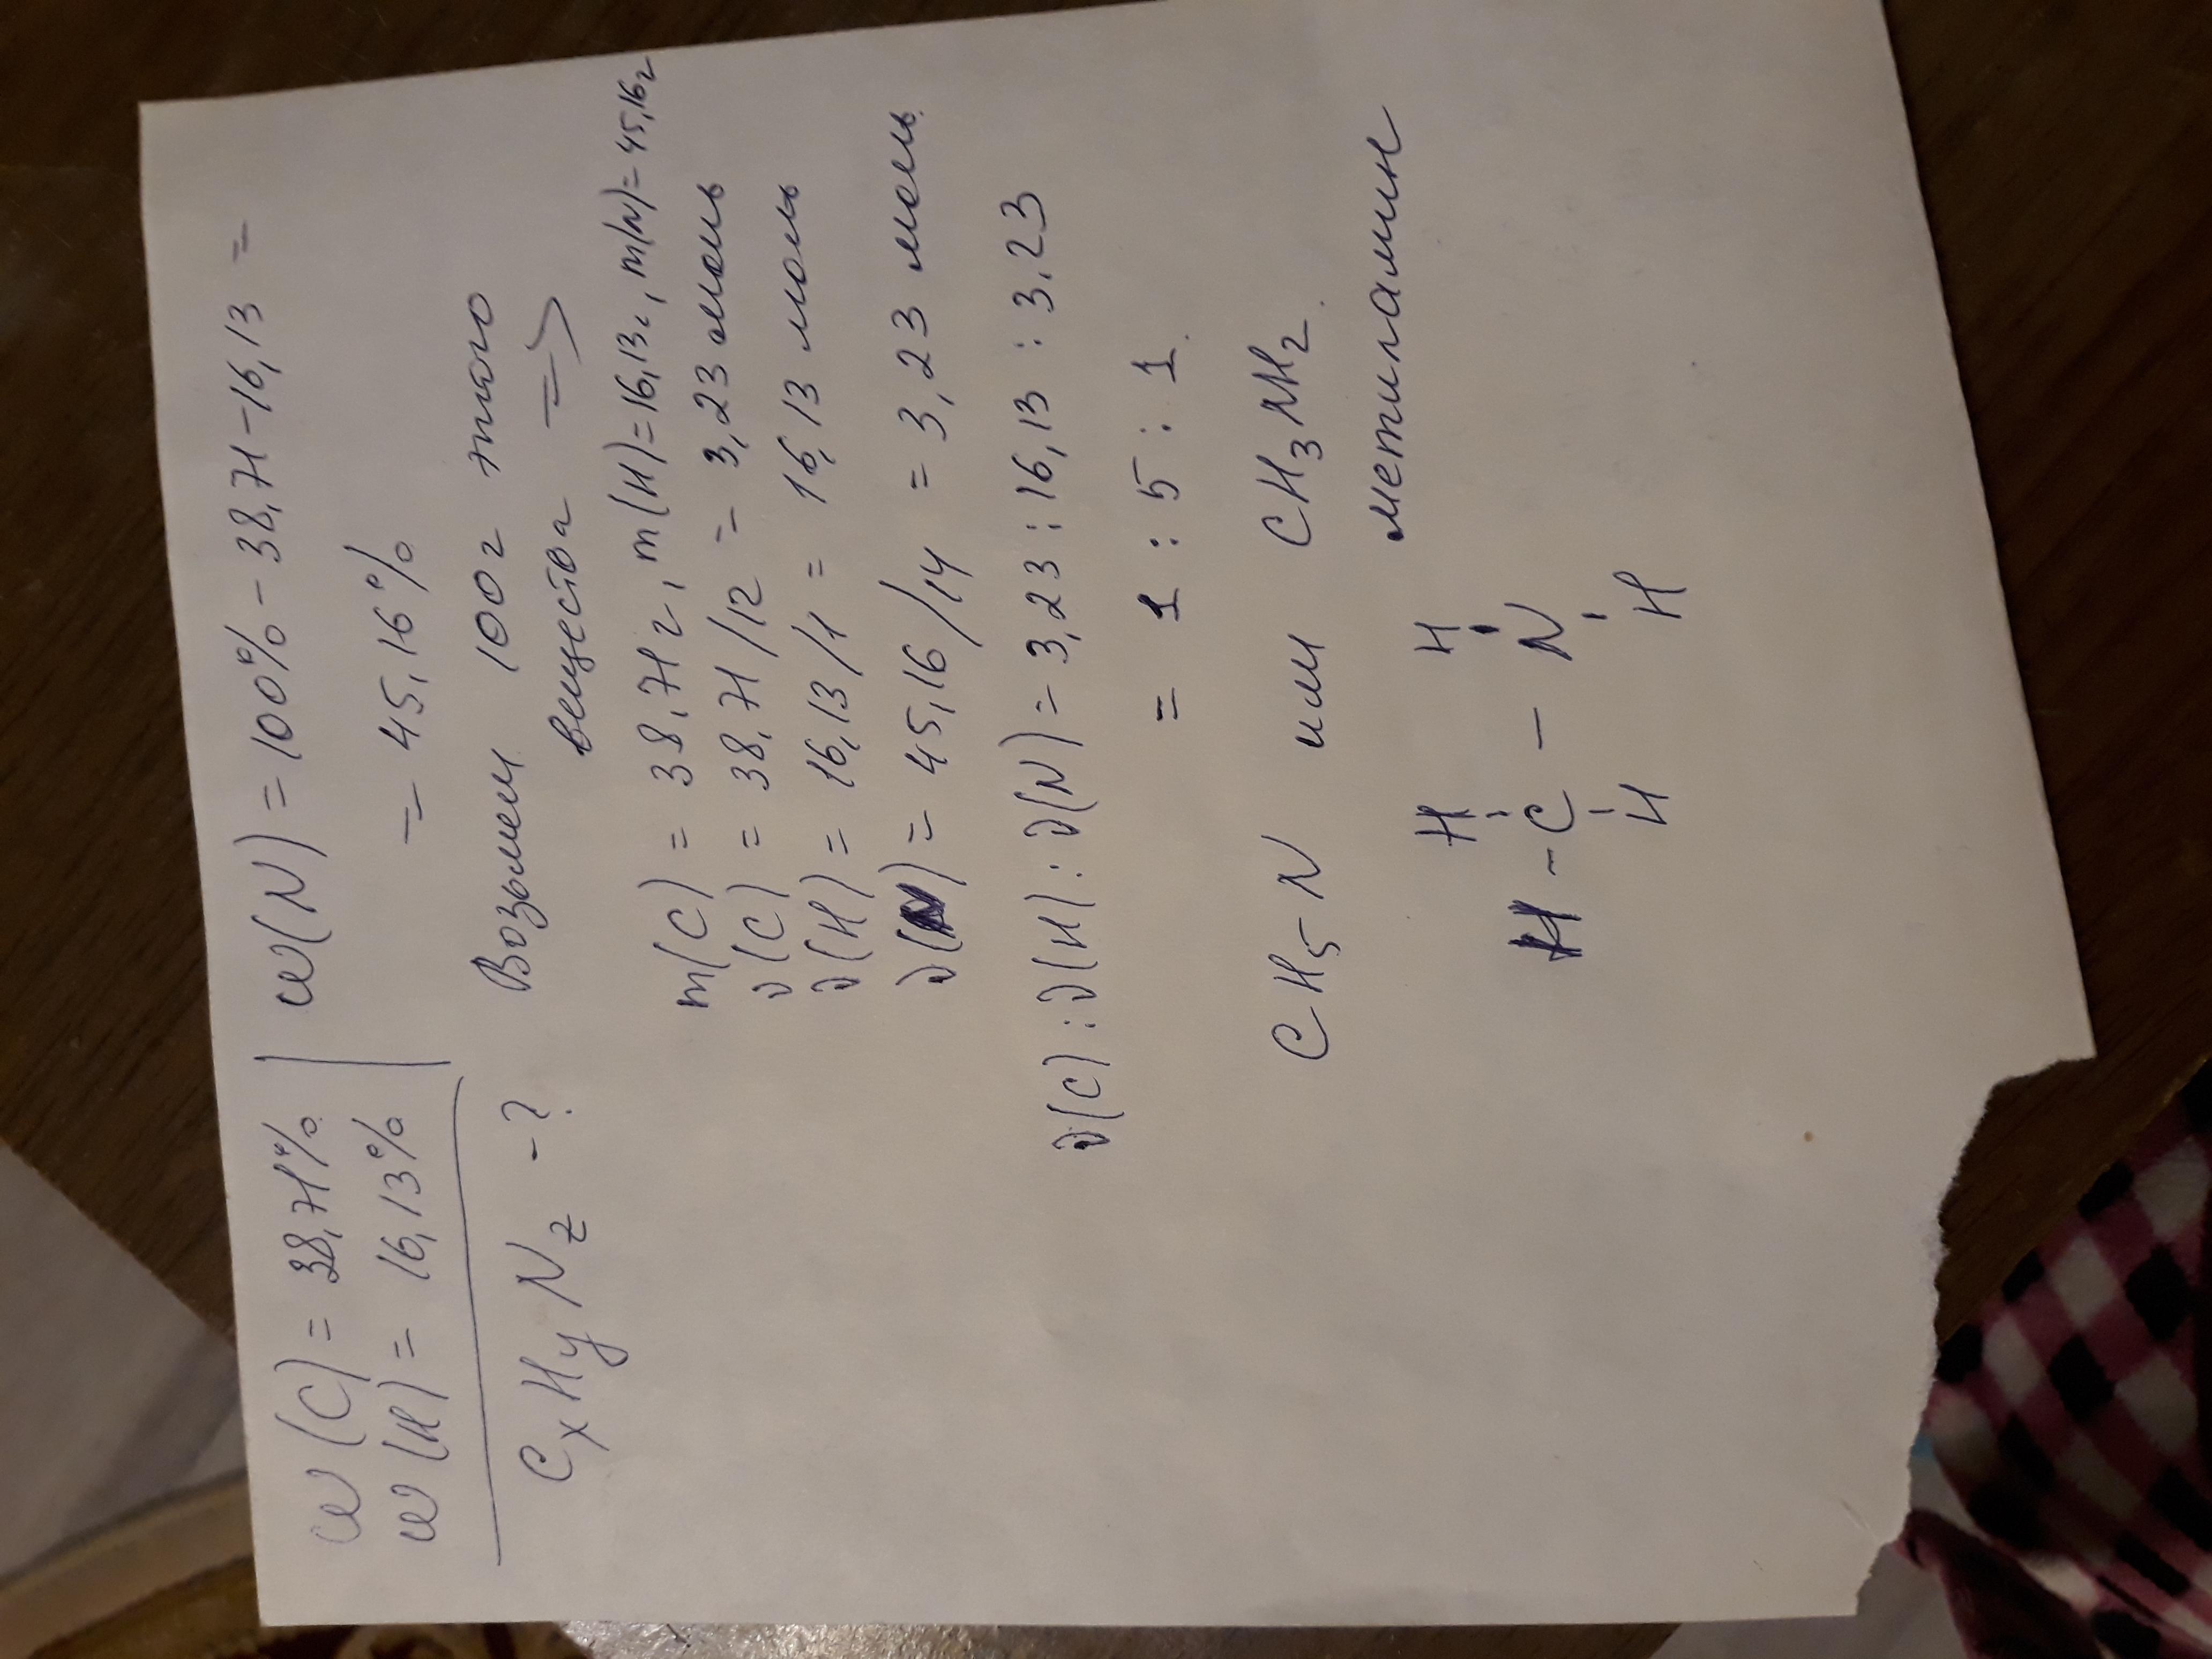 w(C) = 38,71%
w(H) = 16,13%
CxHyNz - ?
w(N) = 100% - 38,71 - 16,13 =
= 45,16%
Возьмем 100г этого
вещества =>
m(C) = 38,71г, m(H)=16,13г, m(N)=45,16г
ν(C) = 38,71/12 = 3,23 моль
ν(H) = 16,13/1 = 16,13 моль
ν(N) = 45,16/14 = 3,23 моль
ν(C):ν(H):ν(N) = 3,23:16,13:3,23
= 1:5:1.
CH₅N или CH₃NH₂.
метиламин
H H
H - C - N
H H